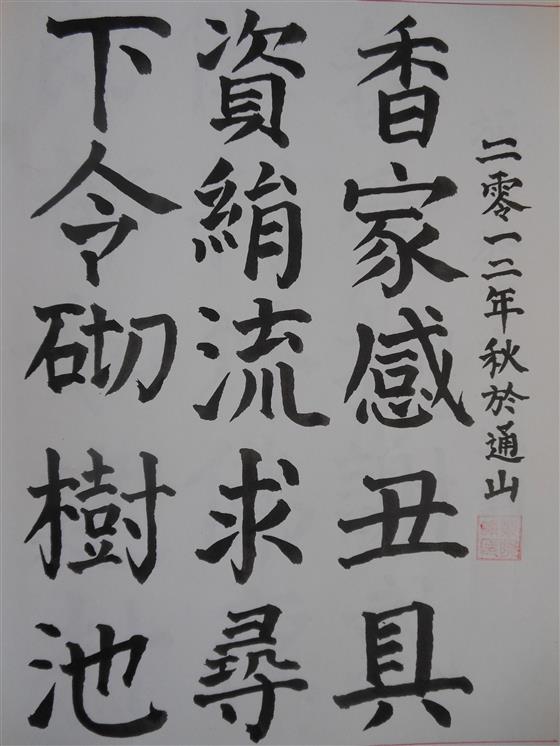 下令砌樹池
資絹流求尋
香家感丑具
二零一二年秋於通山